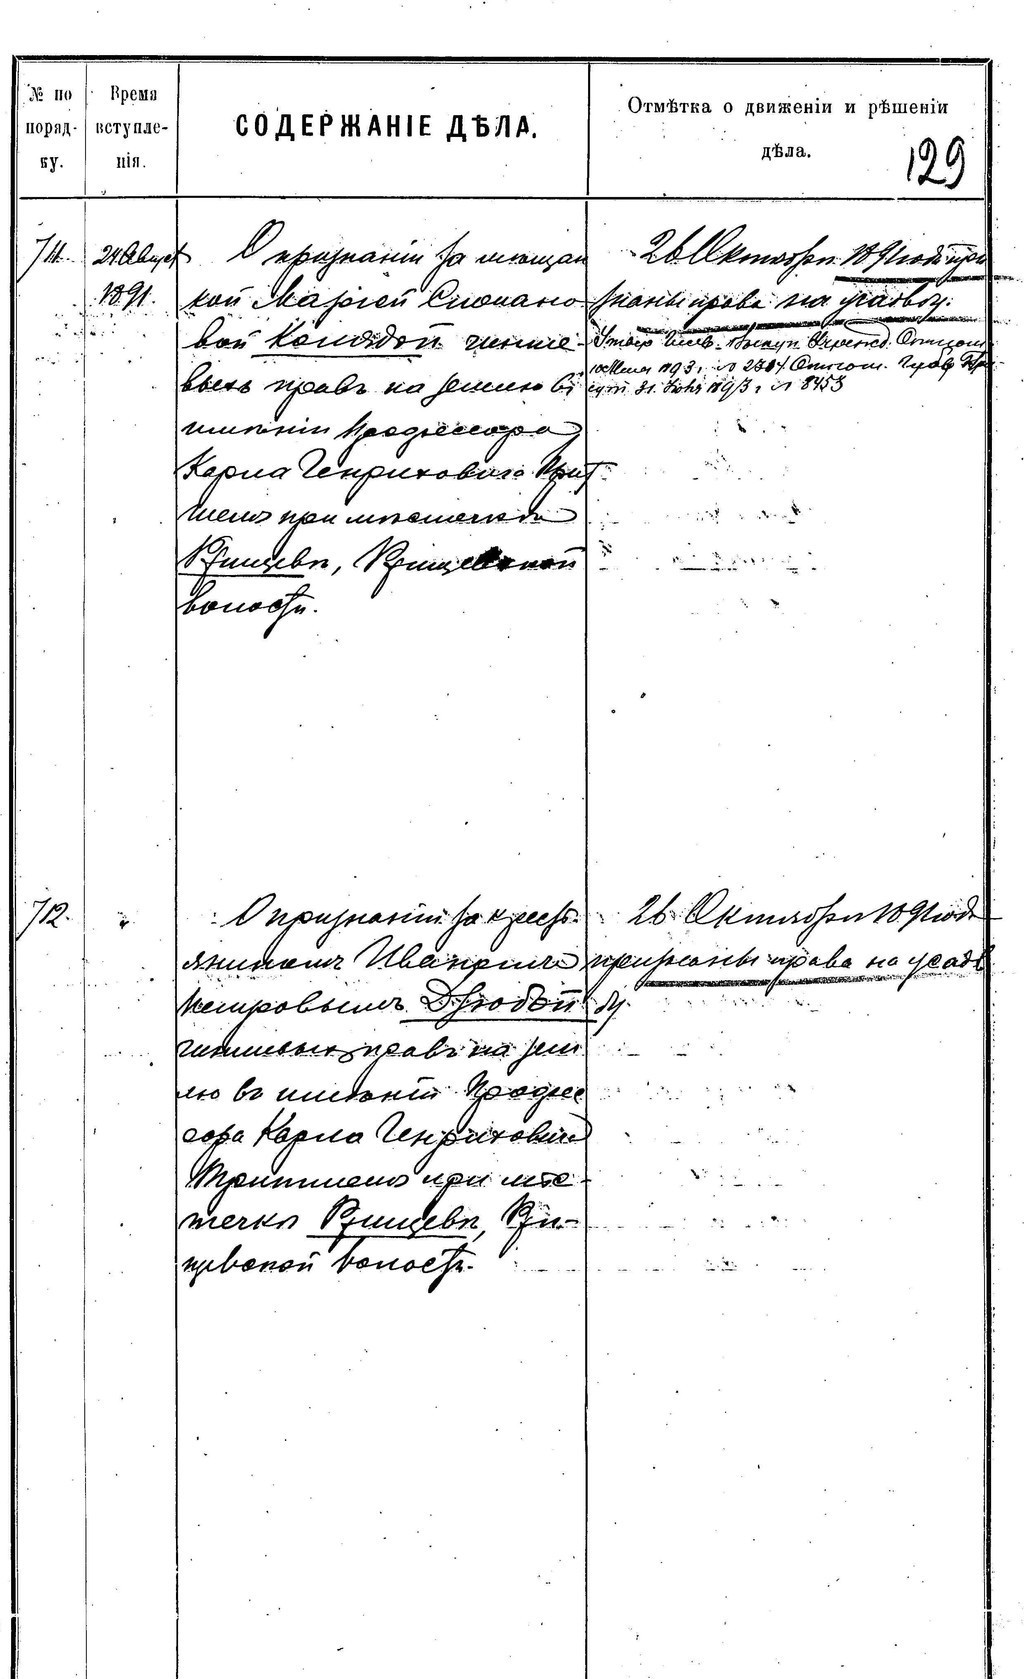 № по поряд- ку.
Время вступле- нія.
СОДЕРЖАНІЕ ДѢЛА.
Отмѣтка о движеніи и рѣшеніи дѣла.
129
711.
24 Август
1891.
О признаніи за мѣщан
кой Маріей Степано
вой чинше
выхъ правъ на землю въ
имѣніи Профессора
Карла Генриховича Трит
шеля при мѣстечкѣ
Ржищевѣ, Ржищевской
волости.
26 Октября 1891 года приз
наны права на усадьбу.
10 Мая 1893 г. № 2304.
31 1893 г. № 8453
712.
"
О признаніи за кресть
яниномъ Иваномъ
Петровымъ Дзюбой
чиншевыхъ правъ на зем
лю въ имѣніи Профес
сора Карла Генриховича
Тритшеля при мѣс-
течкѣ Ржищевѣ, Ржи-
щевской волости.
26 Октября 1891 года
признаны права на усадь
бу.